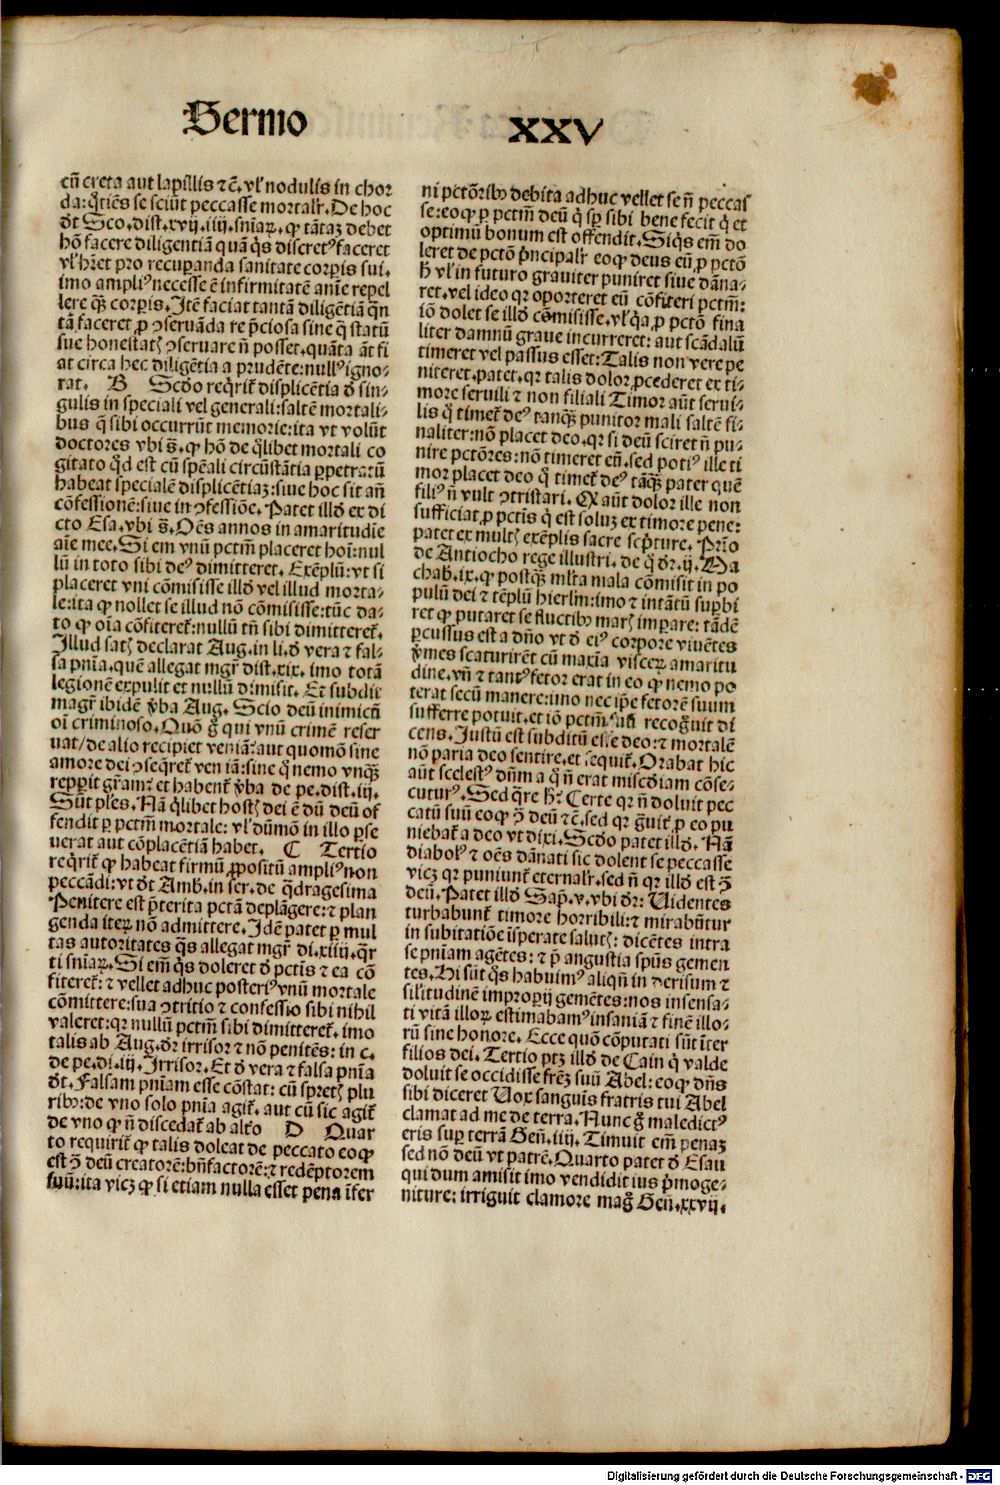 Sermo XXV
cū creta aut lapillis ⁊cē. vl' nodulis in chor
da: q̄tiēs se sciūt peccasse mortalr̄. De hoc
d̄t Sco. dist. xvij. iiij. sniaꝝ. ꝙ tātaꝫ debet
hō facere diligentiā quā q̄s discretꝰ faceret
vl' hr̄et pro recuꝑanda sanitate corpis sui.
imo ampliꝰ necesse ē infirmitatē aīe repel
lere qꝫ̄ corpis. Itē faciat tantā diligētiā qn̄
tā faceret ꝓ ꝯseruāda re p̄ciosa sine q̄ statū
sue honestatꝭ ꝯseruare n̄ posset. quāta āt fi
at circa hec diligētia a prudēte: nullꝰ igno⸗
rat. B Scd̄o req̄rit̄ displicētia d̄ sin⸗
gulis in speciali vel generali: saltē mortali⸗
bus q̄ sibi occurrūt memorie: ita vt volūt
doctores vbi s̄. ꝙ hō de q̄libet mortali co
gitato qd̄ est cū spēali circūstātia ꝑpetratū
habeat specialē displicētiaꝫ: siue hoc sit an̄
cōfessionē: siue in ꝯfessiōe. Patet illd̄ ex di
cto Esa. vbi s̄. Oēs annos in amaritudīe
aīe mee. Si em̄ vnū pctm̄ placeret hoī: nul
lū in toto sibi deꝰ dimitteret. Exēplū: vt si
placeret vni cōmisisse illd̄ vel illud morta⸗
le: ita ꝙ nollet se illud nō cōmisisse: tūc da⸗
to ꝙ oīa cōfiteret̄: nullū tn̄ sibi dimitteret̄.
Illud satꝭ declarat Aug. in li. d̄ vera ⁊ fal⸗
sa pnīa. quē allegat mgr̄ dist. xix. imo totā
legionē expulit et nullū dimisit. Et subdit
magr̄ ibidē v̄ba Aug. Scio deū inimicū
oī criminoso. Quō g̊ qui vnū crimē reser
uat/ de alio recipiet veniā: aut quomō sine
amore dei ꝯseq̄ret̄ veniā: sine q̄ nemo vnqꝫ̄
repperit gr̄am: et habent̄ v̄ba de pe. dist. iij.
Sūt pl'es. Nā q̄libet hostꝭ dei ē dū deū of
fendit ꝑ pctm̄ mortale: vl' dūmō in illo ꝑse
uerat aut cōplacētiā habet. C Tertio
req̄rit̄ ꝙ habeat firmū ꝓpositū ampliꝰ non
peccādi: vt d̄t Amb. in ser. de q̄dragesima
Penitere est p̄terita pctā deplāgere: ⁊ plan
genda iteꝝ nō admittere. Idē patet ꝑ mul
tas autoritates q̄s allegat mgr̄ di. xiiij. q̄r
ti sniaꝝ. Si em̄ q̄s doleret d̄ pctīs ⁊ ea cō
fiteret̄: ⁊ vellet adhuc posteriꝰ vnū mortale
cōmittere: sua ꝯtritio ⁊ confessio sibi nihil
valeret: qr nullū pctm̄ sibi dimitteret̄. imo
talis ab Aug. dr̄ irrisor ⁊ nō penitēs: in c.
de pe. di. iij. Irrisor. Et d̄ vera ⁊ falsa pnīa
d̄t. Falsam pnīam esse cōstat: cū spretꝭ plu
ribꝰ: de vno solo pnīa agit̄. aut cū sic agit̄
de vno ꝙ n̄ discedat̄ ab alt̄o D Quar
to requirit̄ ꝙ talis doleat de peccato eo ꝙ
est ꝯ̄ deū creatorē: bn̄factorē: ⁊ redēptorem
suū: ita vicꝫ ꝙ si etiam nulla esset pena īfer
ni pctōribꝰ debita adhuc vellet se n̄ peccas
se: eo ꝙ ꝑ pctm̄ deū q̄ sꝑ sibi bene fecit q̄ et
optimū bonum est offendit. Siq̄s em̄ do
leret de pctō p̄ncipalr̄ eo ꝙ deus eū ꝓ pctō
h̄ vl' in futuro grauiter puniret siue dāna⸗
ret. vel ideo qr oporteret eū cōfiteri pctm̄:
iō dolet se illd̄ cōmisisse. vl' q̄a ꝓ pctō fina
liter damnū graue incurreret: aut scādalū
timeret vel passus esset: Talis non vere pe
niteret. patet. qr talis dolor ꝓcederet ex ti⸗
more seruili ⁊ non filiali Timor aūt serui⸗
lis q̄ timet̄ deꝰ tanqꝫ̄ punitor mali saltē fi⸗
naliter: nō placet deo. qr si deū sciret n̄ pu⸗
nire pctōres: nō timeret eū. sed potiꝰ ille ti
mor placet deo q̄ timet̄ deꝰ tāqꝫ̄ pater quē
filiꝰ n̄ vult ꝯtristari. Qꝛ aūt dolor ille non
sufficiat ꝓ pctīs q̄ est soluꝫ ex timore pene:
patet ex multꝭ exēplis sacre sc̄pture. Prīo
de Antiocho rege illustri. de q̄ dr̄. ij. Ma
chab. ix. ꝙ postqꝫ̄ ml'ta mala cōmisit in po
pulū dei ⁊ tēplū hierlm̄: imo ⁊ intātū suꝑbi
ret ꝙ putaret se fluctibꝰ marꝭ imꝑare: tādē
ꝑcussus est a dn̄o vt d̄ eiꝰ corpore viuētes
v̄mes scaturirēt cū maxīa visceꝝ amaritu
dine. vn̄ ⁊ tantꝰ fetor erat in eo ꝙ nemo po
terat secū manere: imo nec ip̄e fetorē suum
sufferre potuit. et iō pctm̄ suū recog̊uit di
cens. Justū est subditū esse deo: ⁊ mortalē
nō paria deo sentire. et seq̄uit̄. Orabat hic
aūt scelestꝰ dn̄m a q̄ n̄ erat miscd̄iam cōse⸗
cuturꝰ. Sed q̄re hꝭ Certe qr n̄ doluit pec
catū suū eo ꝙ ꝯ̄ deū ⁊cē. sed qr g̊uit̄ ꝓ eo pu
niebat̄ a deo vt dixi. Scd̄o patet illd̄. Nā
diabolꝰ ⁊ oēs dānati sic dolent se peccasse
vicꝫ qr puniunt̄ eternalr̄. sed n̄ qr illd̄ est ꝯ̄
deū. Patet illd̄ Sap̄. v. vbi dr̄: Uidentes
turbabunt̄ timore horribili: ⁊ mirabūtur
in subitatiōe īsperate salutꝭ: dicētes intra
se pnīam agētes: ⁊ p̄ angustia spūs gemen
tes. Hi sūt q̄s habuimꝰ aliqn̄ in derisum ⁊
sil'itudinē improꝑij gemētes: nos insensa⸗
ti vitā illoꝝ estimabamꝰ insaniā ⁊ finē illo⸗
rū sine honore. Ecce quō cōputati sūt īter
filios dei. Tertio ptꝫ illd̄ de Cain q̄ valde
doluit se occidisse fr̄eꝫ suū Abel: eo ꝙ dn̄s
sibi diceret Uox sanguīs fratris tui Abel
clamat ad me de terra. Nunc g̊ maledictꝰ
eris suꝑ terrā Gen̄. iiij. Timuit em̄ penaꝫ
sed nō deū vt patrē. Quarto patet d̄ Esau
qui dum amisit imo vendidit ius p̄moge⸗
niture: irriguit clamore mag̊ Gen̄. xxvij.
Digitalisierung gefördert durch die Deutsche Forschungsgemeinschaft - DFG